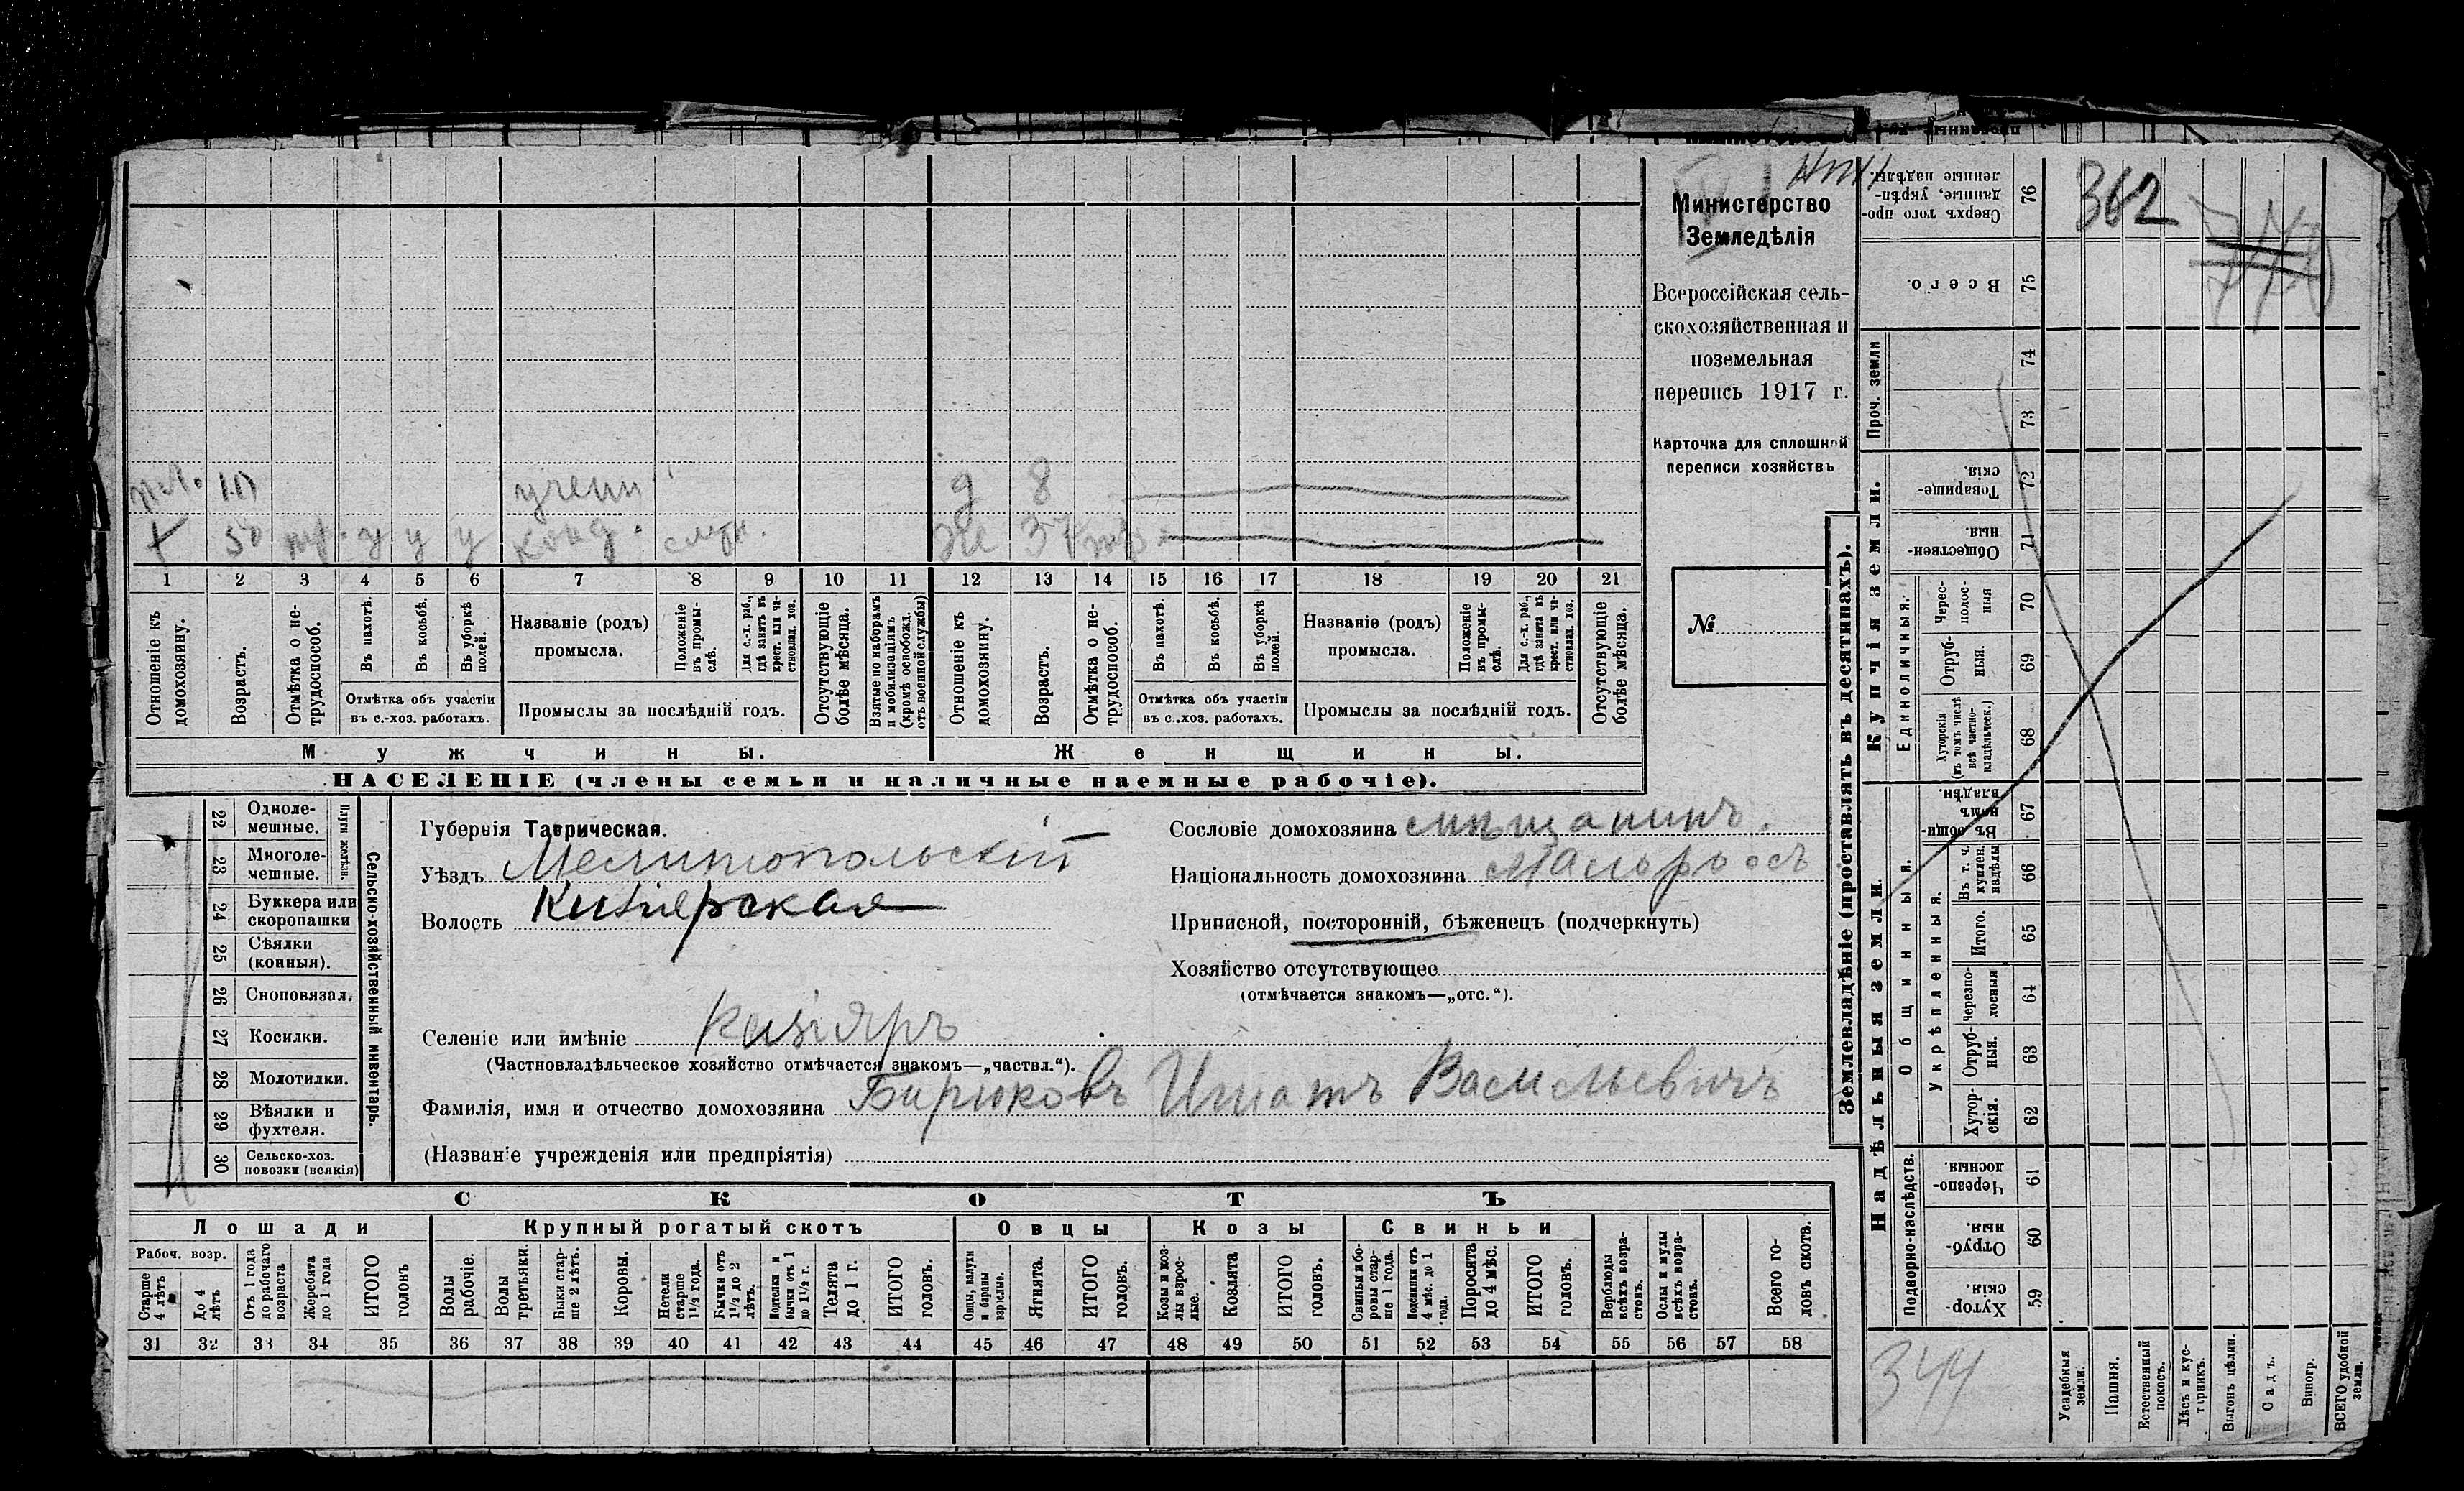 Министерство
Земледѣлія
Всероссійская сель-
скохозяйственная и
поземельная
перепись 1917 г.
Карточка для сплошной
переписи хозяйствъ
№
362
10 учени д 8
х 50 тр. у у у конд. служ. ж 37 тр.
1 2 3 4 5 6 7 8 9 10 11 12 13 14 15 16 17 18 19 20 21
Отношеніе къ домохозяину.
Возрастъ.
Отмѣтка о не-трудоспособ.
Въ пахотѣ.
Въ косьбѣ.
Въ уборкѣ полей.
Отмѣтка объ участіи
въ с.-хоз. работахъ.
Названіе (родъ)
промысла.
Положеніе въ промы-слѣ.
Для с.-х. раб., гдѣ занятъ въ крест. или ча-стновлад. хоз.
Промыслы за послѣдній годъ.
Отсутствующіе болѣе мѣсяца.
Взятые по наборамъ и мобилизаціямъ (кромѣ освобожд. отъ военной службы)
Отношеніе къ домохозяину.
Возрастъ.
Отмѣтка о не-трудоспособ.
Въ пахотѣ.
Въ косьбѣ.
Въ уборкѣ полей.
Отмѣтка объ участіи
въ с.-хоз. работахъ.
Названіе (родъ)
промысла.
Положеніе въ промы-слѣ.
Для с.-х. раб., гдѣ занята въ крест. или ча-стновлад. хоз.
Промыслы за послѣдній годъ.
Отсутствующіе болѣе мѣсяца.
Мужчины. Женщины.
НАСЕЛЕНІЕ (члены семьи и наличные наемные рабочіе).
22 Одноле-мешные.
23 Многоле-мешные.
Плуги желѣзн.
24 Буккера или скоропашки
25 Сѣялки (конныя).
26 Сноповязал.
27 Косилки.
28 Молотилки.
29 Вѣялки и фухтеля.
30 Сельско-хоз. повозки (всякія)
Сельско-хозяйственный инвентарь.
Губернія Таврическая.
Уѣздъ Мелитопольскій
Волость Кизіярская
Сословіе домохозяина мѣщанинъ.
Національность домохозяина Малороссъ
Приписной, посторонній, бѣженецъ (подчеркнуть)
Хозяйство отсутствующее
(отмѣчается знакомъ—„отс.“).
Селеніе или имѣніе Кизіяръ
(Частновладѣльческое хозяйство отмѣчается знакомъ—„частвл.“).
Фамилія, имя и отчество домохозяина Бирюковъ Игнатъ Васильевичъ
(Названіе учрежденія или предпріятія)
СКОТЪ
Лошади Крупный рогатый скотъ Овцы Козы Свиньи
Рабоч. возр.
Старше 4 лѣтъ
До 4 лѣтъ
Отъ 1 года до рабочаго возраста
Жеребята до 1 года
ИТОГО головъ
Волы рабочіе.
Волы третьяки.
Быки стар-ше 2 лѣтъ.
Коровы.
Нетели старше 1½ года.
Бычки отъ 1½ до 2 лѣтъ.
Подтелки и бычки отъ 1 до 1½ г.
Телята до 1 г.
ИТОГО головъ.
Овцы, валухи и бараны взрослые.
Ягнята.
ИТОГО головъ.
Козы и коз-лы взрос-лые.
Козлята
ИТОГО головъ.
Свиньи и бо-ровы стар-ше 1 года.
Подсвинки отъ 4 мѣс. до 1 года.
Поросята до 4 мѣс.
ИТОГО головъ.
Верблюды всѣхъ возра-стовъ.
Ослы и мулы всѣхъ возра-стовъ.
Всего го-ловъ скота.
31 32 33 34 35 36 37 38 39 40 41 42 43 44 45 46 47 48 49 50 51 52 53 54 55 56 57 58
Землевладѣніе (проставлять въ десятинахъ).
Купчія земли.
Надѣльныя земли.
Сверхъ того про-данные, укрѣп-ленные надѣлы. 76
Всего. 75
Проч. земли 74 73
Товарище-скія. 72
Обществен-ныя. 71
Единоличныя.
Черес-полос-ныя 70
Отруб-ныя. 69
Хуторскія (въ томъ числѣ всѣ частно-владѣльческ.) 68
Общинныя.
Въ общин-номъ владѣн. 67
Укрѣпленныя.
Въ т. ч. куплен. надѣлы 66
Итого. 65
Черезпо-лосныя 64
Отруб-ныя. 63
Хутор-скія. 62
Подворно-наслѣдств.
Черезпо-лосныя. 61
Отруб-ныя. 60
Хутор-скія 59
344
Усадебныя земли.
Пашня.
Естественный покосъ.
Лѣсъ и кус-тарникъ.
Выгонъ цѣлин.
Садъ.
Виногр.
ВСЕГО удобной земли.